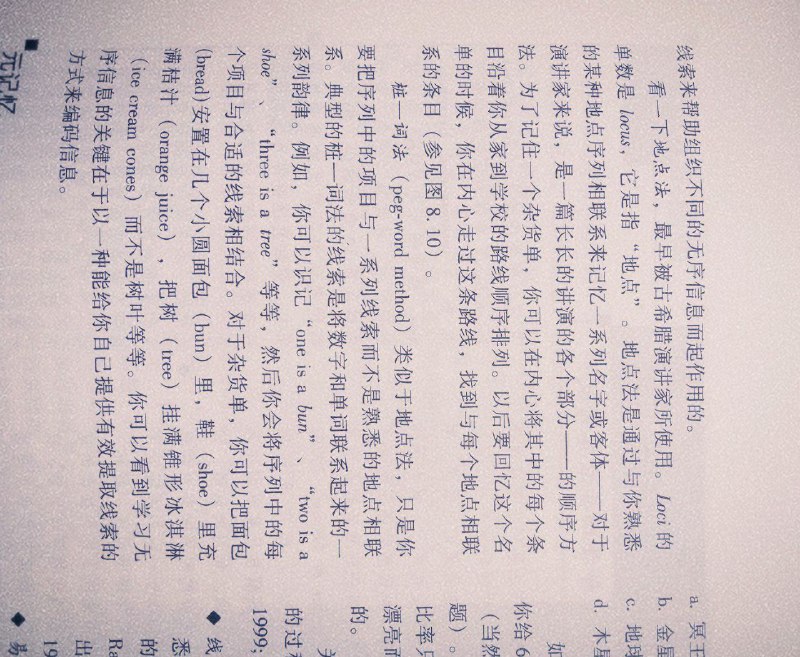 线索来帮助组织不同的无序信息而起作用的。
看一下地点法，最早被古希腊演讲家所使用。Loci 的
单数是 locus，它是指“地点”。地点法是通过与你熟悉
的某种地点序列相联系来记忆一系列名字或客体——对于
演讲家来说，是一篇长长的讲演的各个部分——的顺序方
法。为了记住一个杂货单，你可以在内心将其中的每个条
目沿着你从家到学校的路线顺序排列。以后要回忆这个名
单的时候，你在内心走过这条路线，找到与每个地点相联
系的条目（参见图 8.10）。
桩—词法（peg-word method）类似于地点法，只是你
要把序列中的项目与一系列线索而不是熟悉的地点相联
系。典型的桩—词法的线索是将数字和单词联系起来的一
系列韵律。例如，你可以识记“one is a bun”、“two is a
shoe”、“three is a tree”等等，然后你会将序列中的每
个项目与合适的线索相结合。对于杂货单，你可以把面包
(bread)安置在几个小圆面包（bun）里，鞋（shoe）里充
满桔汁（orange juice），把树（tree）挂满锥形冰淇淋
（ice cream cones）而不是树叶等等。你可以看到学习无
序信息的关键在于以一种能给你自己提供有效提取线索的
方式来编码信息。
元记忆
a. 冥王
b. 金星
c. 地球
d. 木星
如
你给 6
（当然
题）。
比率只
漂亮而
的。
的过
1999;
线
悉
的
Ra
出
19
易